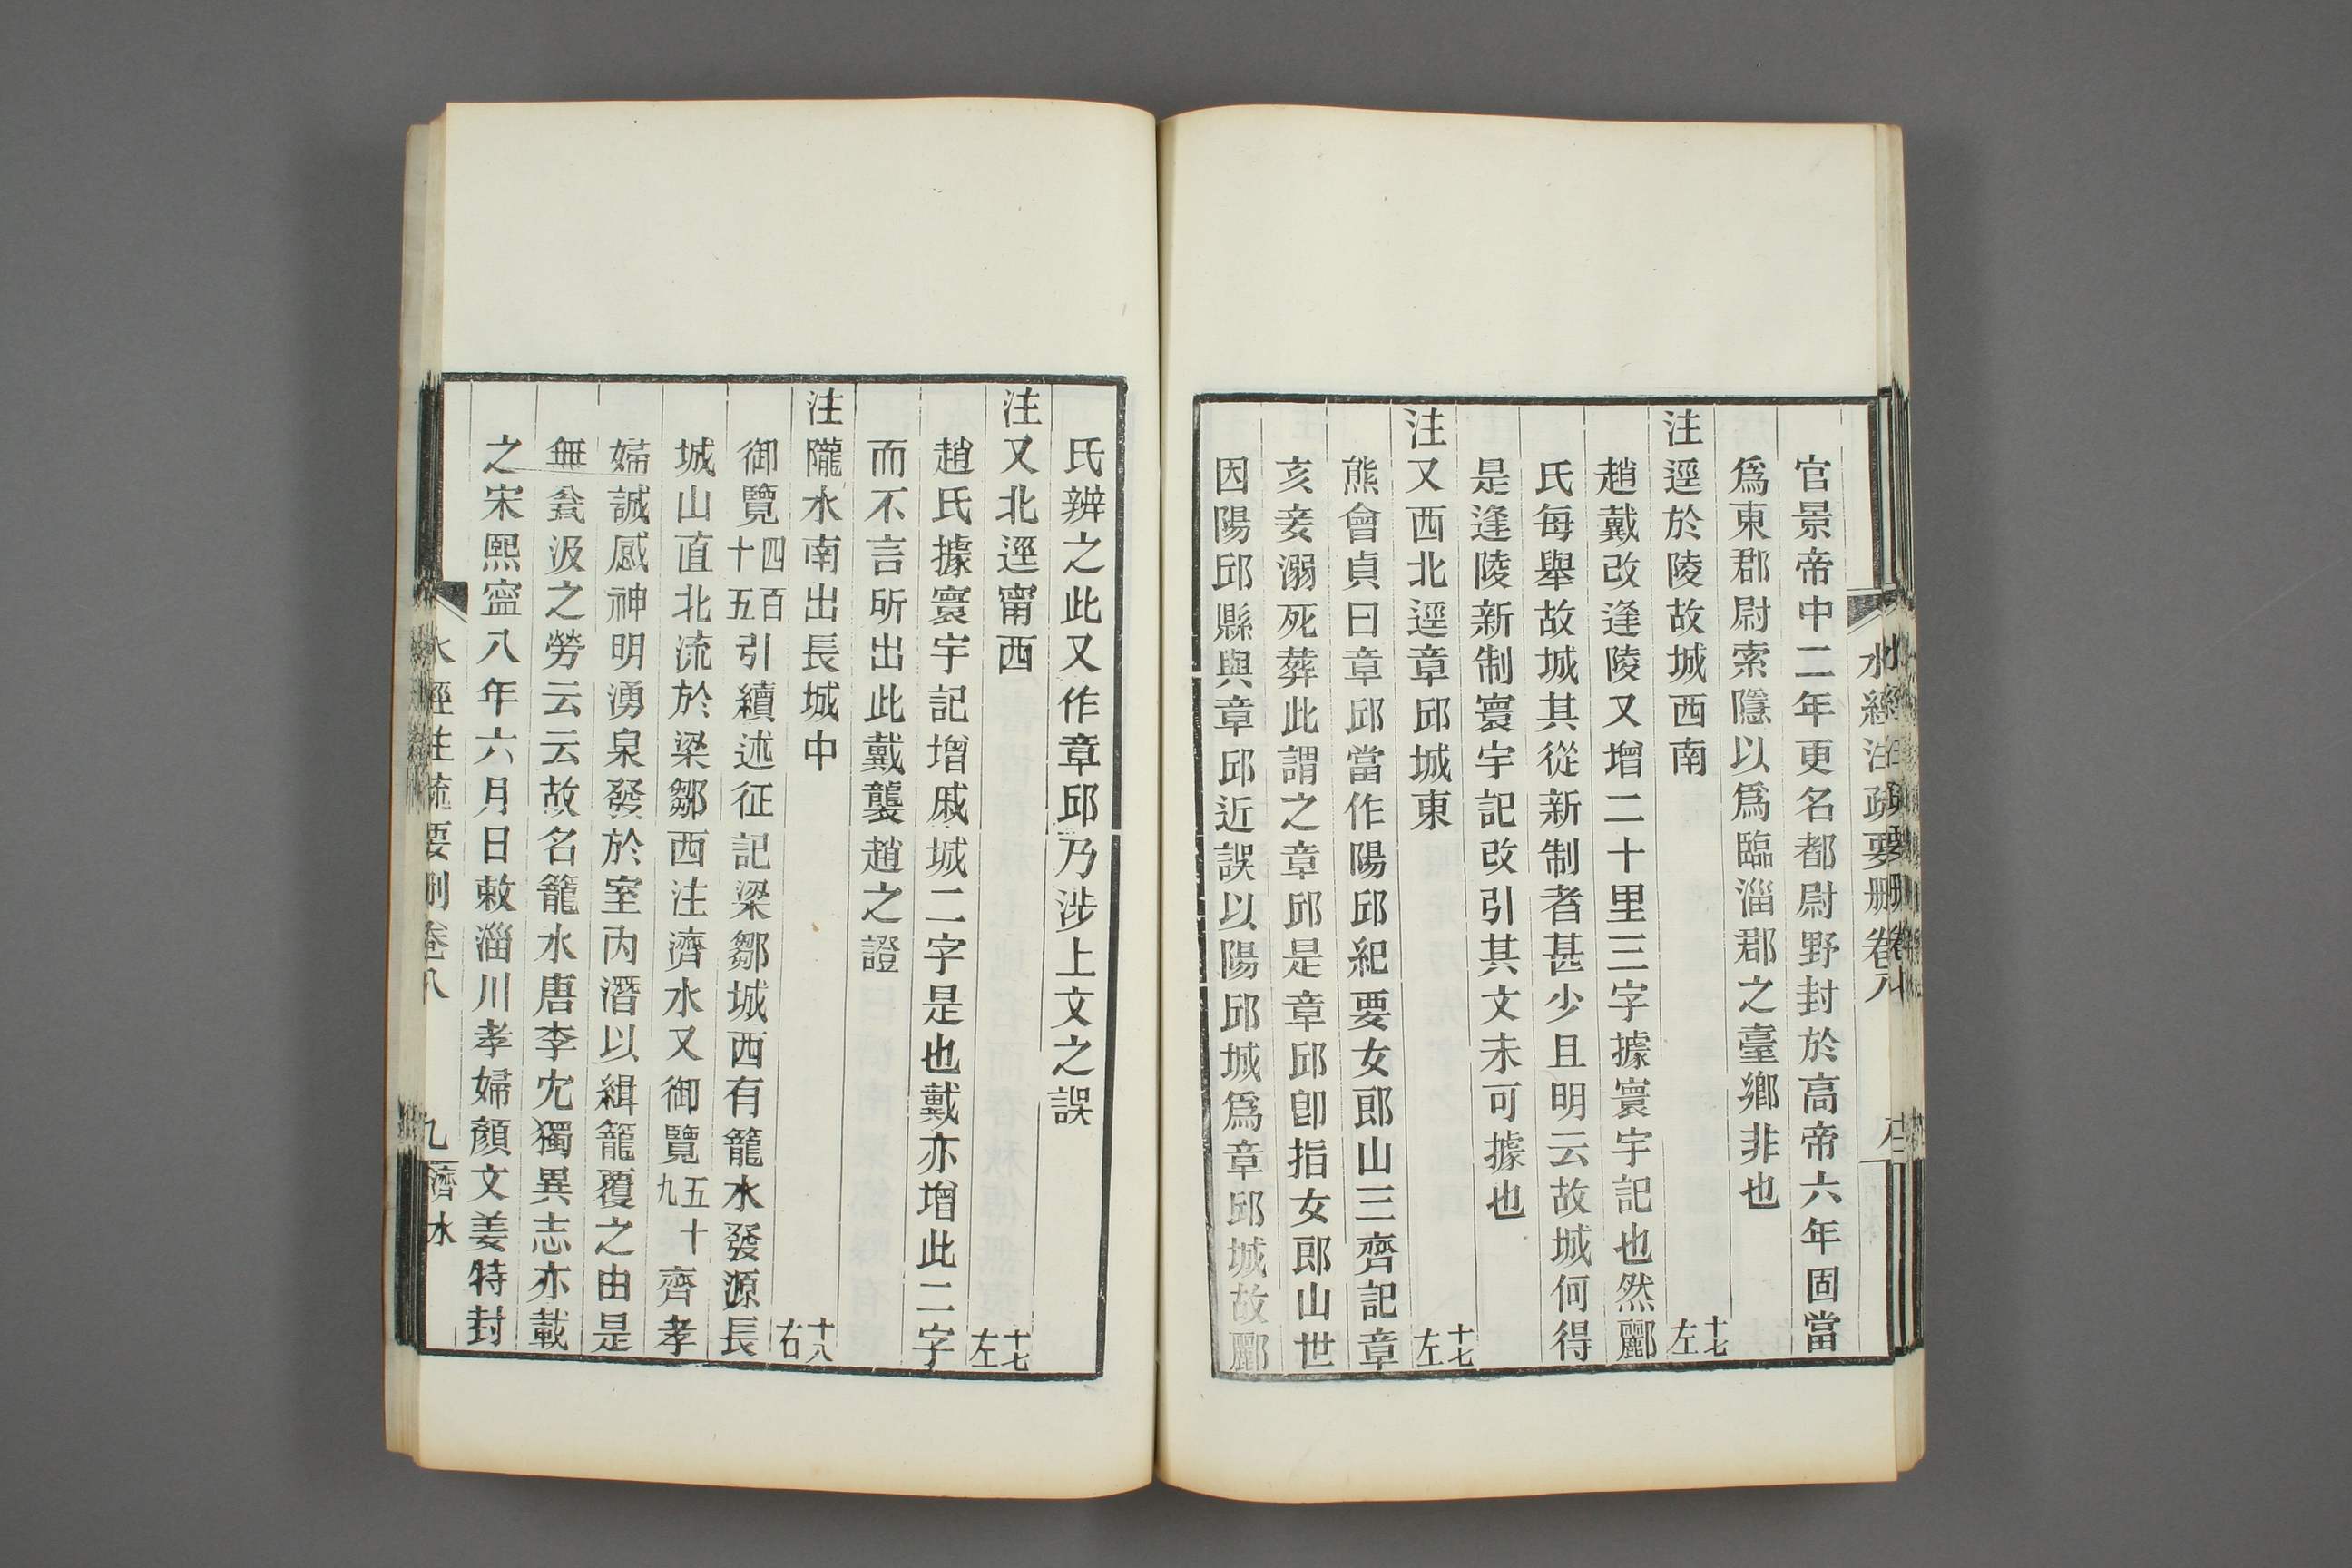 水經注疏要刪卷八
官景帝中二年更名都尉野封於高帝六年固當
爲東郡尉索隱以爲臨淄郡之臺鄉非也
注逕於陵故城西南 十七左
趙戴改逢陵又增二十里三字據寰宇記也然酈
氏每舉故城其從新制者甚少且明云故城何得
是逢陵新制寰宇記改引其文未可據也
注又西北逕章邱城東 十七左
熊會貞曰章邱當作陽邱紀要女郎山三齊記章
亥妾溺死葬此謂之章邱是章邱卽指女郎山世
因陽邱縣與章邱近誤以陽邱城爲章邱城故酈
氏辨之此又作章邱乃涉上文之誤
注又北逕甯西 十七左
趙氏據寰宇記增戚城二字是也戴亦增此二字
而不言所出此戴襲趙之證
注隴水南出長城中 十八右
御覽四百十五引續述征記梁鄒城西有籠水發源長
城山直北流於梁鄒西注濟水又御覽五十九齊孝
婦誠感神明湧泉發於室內潛以緝籠覆之由是
無瓮汲之勞云云故名籠水唐李冘獨異志亦載
之宋熙寧八年六月日敕淄川孝婦顏文姜特封
水經注疏要刪卷八 九 濟水